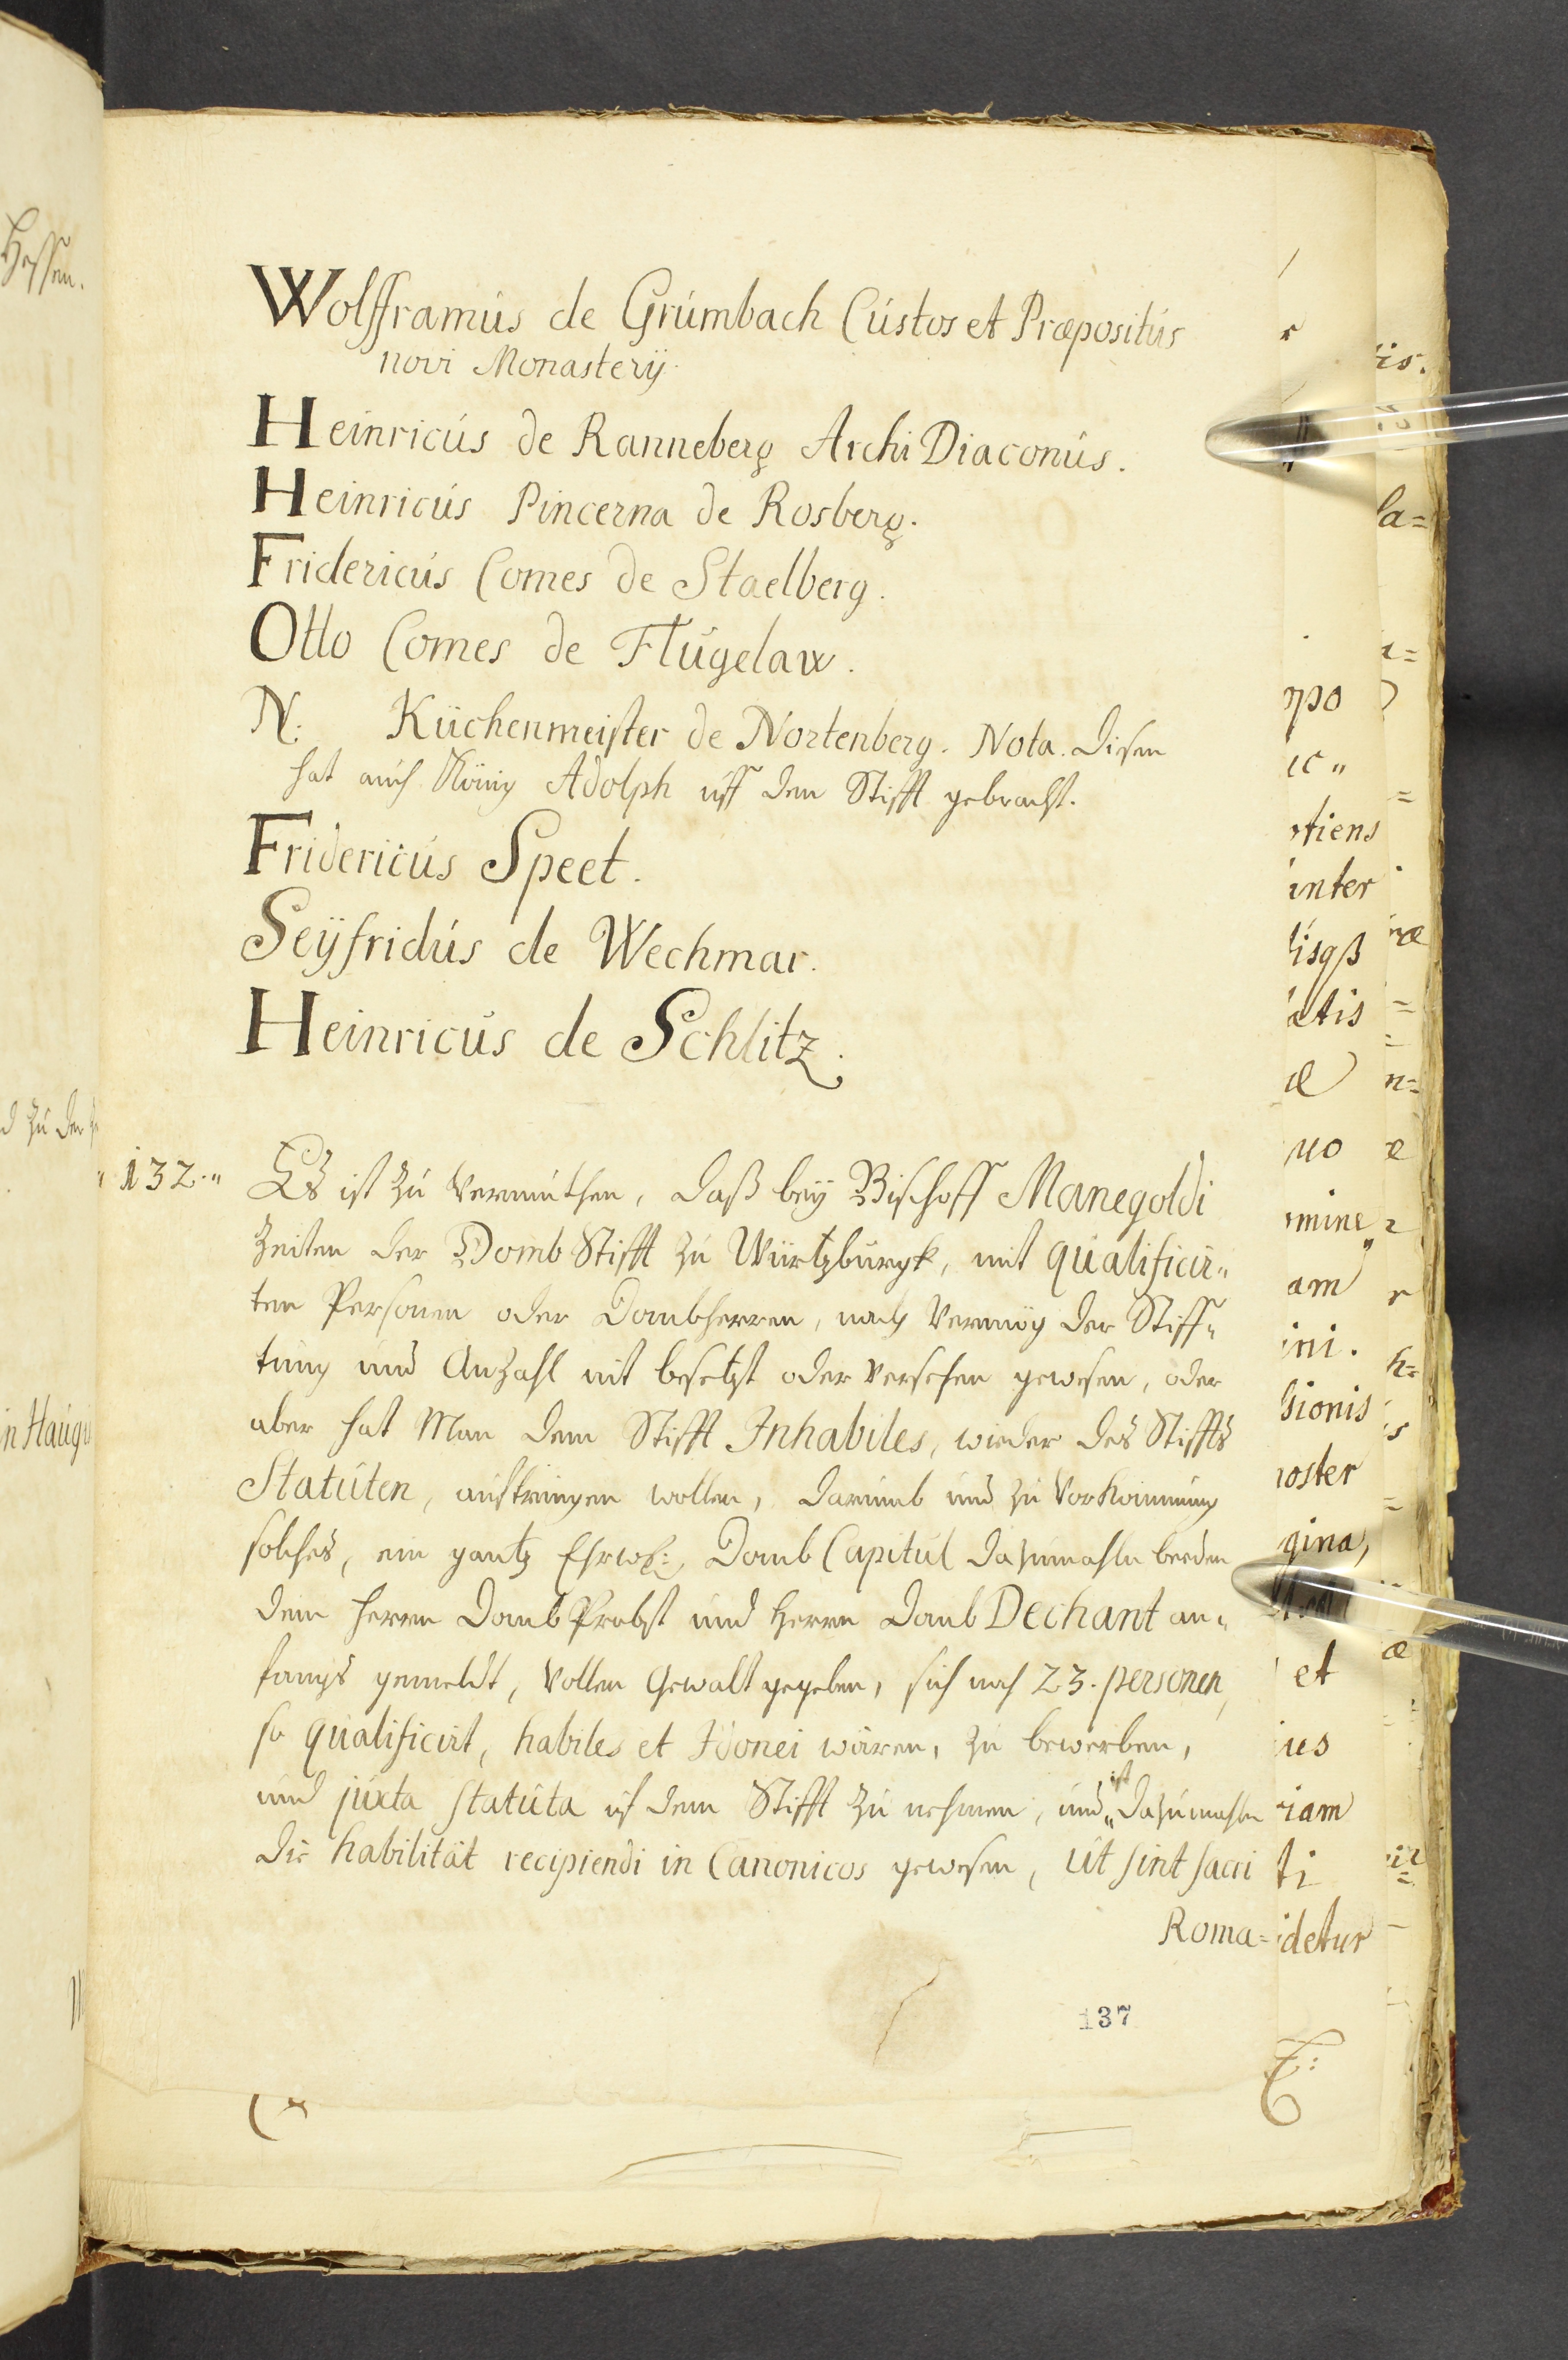 Wolfframus de Grumbach Custos et Præpositus
novi Monasterij.
Heinricus de Ranneberg Archi Diaconus.
Heinricus Pincerna de Rosberg.
Fridericus Comes de Staelberg.
Otto Comes de Flugelaw.
N. Küchenmeister de Nortenberg. Nota. disen
hat auch König Adolph uff dem Stifft gebracht.
Fridericus Speet.
Seÿfridus de Wechmar.
Heinricus de Schlitz.
"132." Es ist zu Vermuthen, daß beÿ Bischoff Manegoldi
Zeiten der Domb Stifft zu Würtzburgk, mit qualificir„
ten Personen oder Dombherren, nach Vermög der Stiff„
tung und Anzahl nit besetzt oder Versehen gewesen, oder
aber hat Man dem Stifft Inhabiles, wieder des Stiffts
Statuten, auftringen wollen, darumb und zu Vorkommung
solches, ein gantz Ehrw: Domb Capitul dazumahln beeden
dem Herrn Domb Probst und Herrn Domb Dechant an„
fangs gemeldt, Vollen Gewalt gegeben, sich nach 23. personen,
so qualificirt, habiles et Idonei wären, zu bewerben,
und juxta statuta uf dem Stifft zu nehmen, und„ ist dazumahln
die habilität recipiendi in Canonicos gewesen, ut sint sacri
Roma=
137